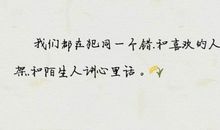 我们都在犯同一个错.和喜欢的人
架.和陌生人讲心里话。